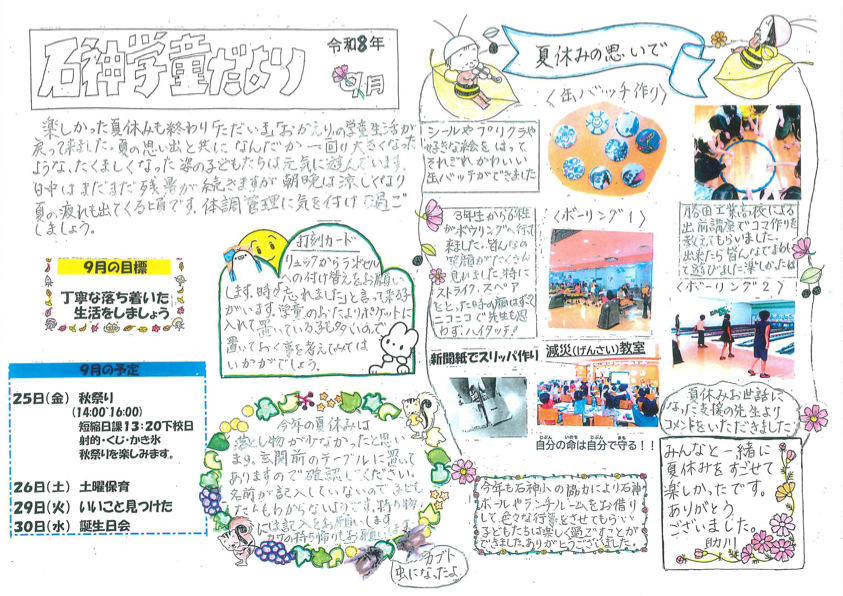 石神学童だより
令和8年
9月
楽しかった夏休みも終わり「ただいま」「おかえり」の学童生活が
戻って来ました。夏の思い出と共になんだか一回り大きくなった
ような、たくましくなった姿の子どもたちは元気に遊んでいます。
日中はまだまだ残暑が続きますが朝晩は涼しくなり
夏の疲れも出てくる頃です。体調管理に気を付けて過ご
しましょう。
9月の目標
丁寧な落ち着いた
生活をしましょう
9月の予定
25日(金) 秋祭り
(14:00~16:00)
短縮日課13:20下校日
射的・くじ・かき氷
秋祭りを楽しみます。
26日(土) 土曜保育
29日(火) いいこと見つけた
30日(水) 誕生日会
打刻カード
リュックからランドセル
への付け替えをお願い
します。時々「忘れました」と言って来る子
がいます。学童のおたよりポケットに
入れて置いている子も多いので、
置いておく事を考えてみては
いかがでしょう。
今年の夏休みは
落とし物が少なかったと思い
ます。玄関前のテーブルに置いて
ありますので確認してください。
名前が記入していないので子ども
たちもわからないようです。持ち物
には記入をお願いします
の持ち帰りもお願いします
カブト
虫になったよ
夏休みの思いで
〈缶バッチ作り〉
シールやプリクラや
好きな絵をはって
それぞれかわいい
缶バッチができました
〈ボーリング1〉
3年生から6年生
がボウリングへ行って
来ました。皆んなの
笑顔がたくさん
見れました。特に
ストライク、スペア
をとった時の顔はすごく
ニコニコで先生も思
わず、ハイタッチ!
勝田工業高校による
出前講座でコマ作りを
教えてもらいました。
出来たら皆んなでまわし
て遊びました楽しかったね
〈ボーリング2〉
新聞紙でスリッパ作り
減災(げんさい)教室
自分の命は自分で守る!!
今年も石神小の協力により石神
ホールやランチルームをお借り
して、色々な行事をさせてもらい
子どもたちは楽しく過ごすことが
できました。ありがとうございました。
夏休みお世話に
なった支援の先生より
コメントをいただきました
みんなと一緒に
夏休みをすごせて
楽しかったです。
ありがとう
ございました。
助川